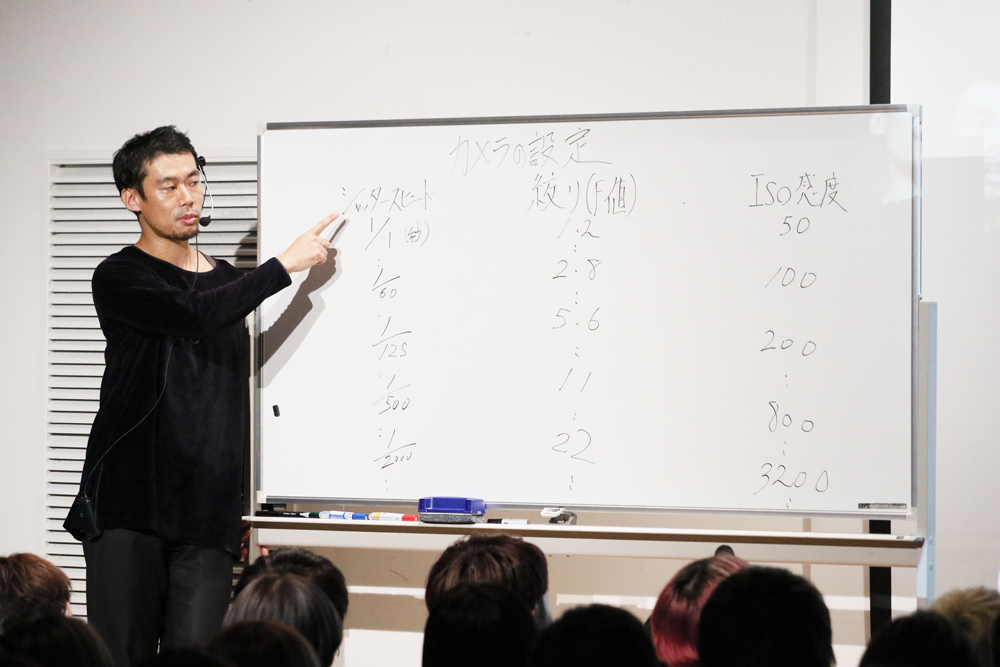 カメラの設定
シャッタースピード
1/1(秒)
:
1/60
:
1/125
:
1/500
:
1/2000
:
絞り(F値)
1.2
:
2.8
:
5.6
:
11
:
22
:
ISO感度
50
100
200
:
800
:
3200
: